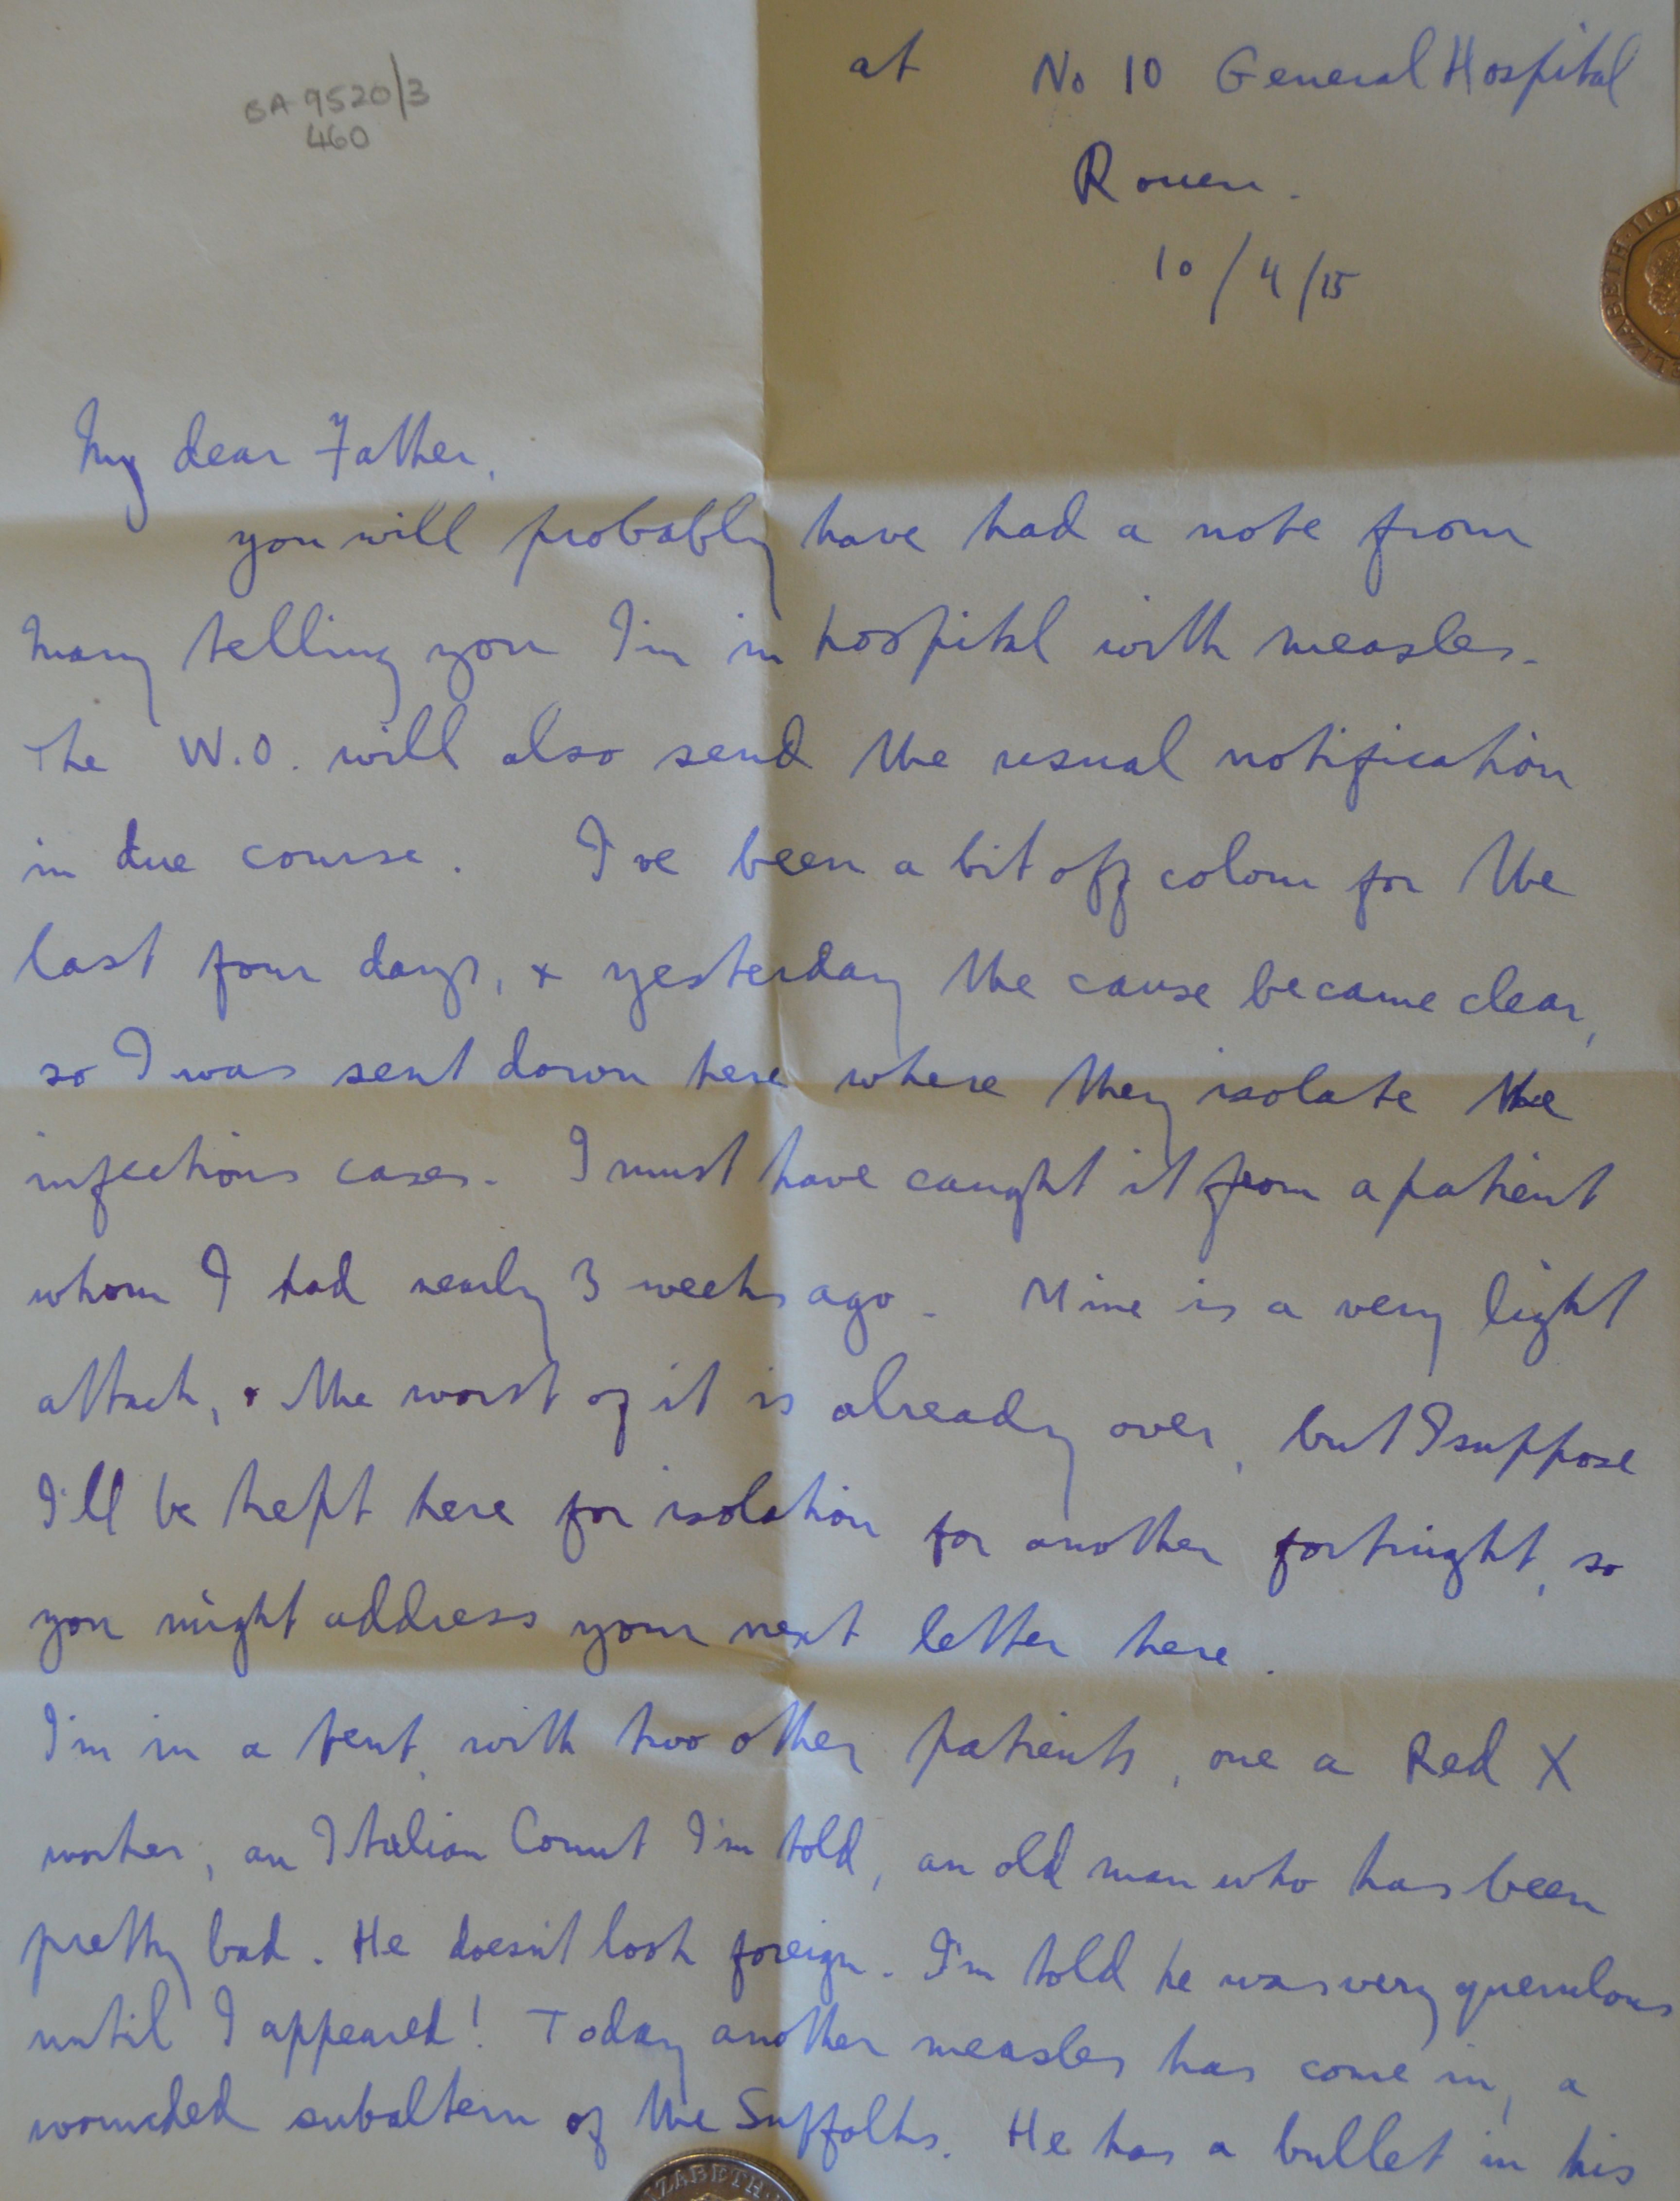 BA 9520/3
460
at No 10 General Hospital
Rouen.
10/4/15
My dear Father,
you will probably have had a note from
Mary telling you I'm in hospital with measles.
The W.O. will also send the usual notification
in due course. I've been a bit off colour for the
last four days, + yesterday the cause became clear,
so I was sent down here where they isolate the
infectious cases. I must have caught it from a patient
whom I had nearly 3 weeks ago. Mine is a very light
attack, + the worst of it is already over, but I suppose
I'll be kept here for isolation for another fortnight, so
you might address your next letter here.
I'm in a tent, with two other patients, one a Red X
worker, an Italian Count I'm told, an old man who has been
pretty bad. He doesn't look foreign. I'm told he was very querulous
until I appeared! Today another measles has come in, a
wounded subaltern of the Suffolks. He has a bullet in his
ELIZABETH II D
ZABETH